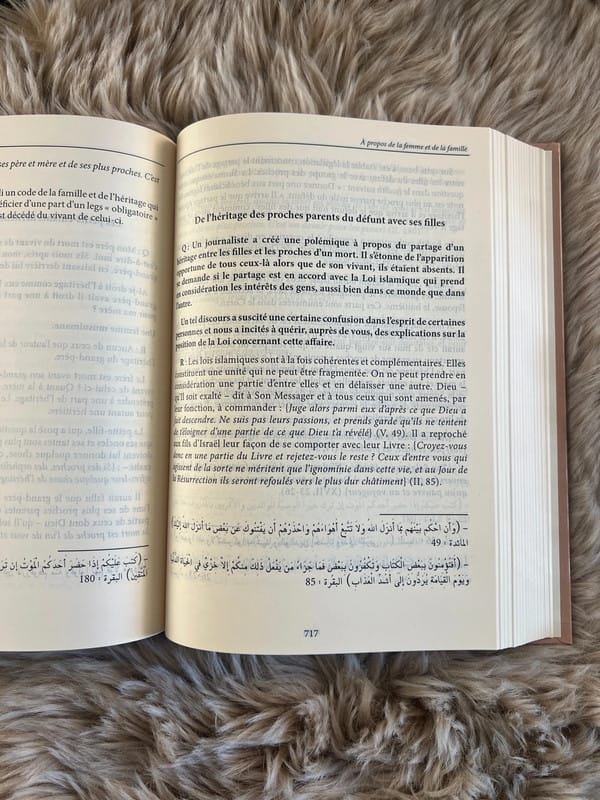 ses père et mère et de ses plus proches. C'est
i un code de la famille et de l'héritage qui
éficier d'une part d'un legs « obligatoire »
est décédé du vivant de celui-ci.
– (كُتِبَ عَلَيْكُمْ إِذَا حَضَرَ أَحَدَكُمُ الْمَوْتُ إِن تَرَ
الْمُتَّقِينَ) البقرة ، 180
À propos de la femme et de la famille
De l'héritage des proches parents du défunt avec ses filles
Q : Un journaliste a créé une polémique à propos du partage d'un
héritage entre les filles et les proches d'un mort. Il s'étonne de l'apparition
opportune de tous ceux-là alors que de son vivant, ils étaient absents. Il
se demande si le partage est en accord avec la Loi islamique qui prend
en considération les intérêts des gens, aussi bien dans ce monde que dans
l'autre.
Un tel discours a suscité une certaine confusion dans l'esprit de certaines
personnes et nous a incités à quérir, auprès de vous, des explications sur la
position de la Loi concernant cette affaire.
R : Les lois islamiques sont à la fois cohérentes et complémentaires. Elles
constituent une unité qui ne peut être fragmentée. On ne peut prendre en
considération une partie d'entre elles et en délaisser une autre. Dieu –
qu'Il soit exalté – dit à Son Messager et à tous ceux qui sont amenés, par
leur fonction, à commander : {Juge alors parmi eux d'après ce que Dieu a
fait descendre. Ne suis pas leurs passions, et prends garde qu'ils ne tentent
de t'éloigner d'une partie de ce que Dieu t'a révélé} (V, 49). Il a reproché
aux fils d'Israël leur façon de se comporter avec leur Livre : {Croyez-vous
donc en une partie du Livre et rejetez-vous le reste ? Ceux d'entre vous qui
agissent de la sorte ne méritent que l'ignominie dans cette vie, et au Jour de
la Résurrection ils seront refoulés vers le plus dur châtiment} (II, 85).
– (وَأَنِ احْكُم بَيْنَهُم بِمَا أَنزَلَ اللَّهُ وَلَا تَتَّبِعْ أَهْوَاءَهُمْ وَاحْذَرْهُمْ أَن يَفْتِنُوكَ عَن بَعْضِ مَا أَنزَلَ اللَّهُ إِلَيْكَ)
المائدة ، 49
– (أَفَتُؤْمِنُونَ بِبَعْضِ الْكِتَابِ وَتَكْفُرُونَ بِبَعْضٍ فَمَا جَزَاءُ مَن يَفْعَلُ ذَلِكَ مِنكُمْ إِلَّا خِزْيٌ فِي الْحَيَاةِ الدُّنْيَا
وَيَوْمَ الْقِيَامَةِ يُرَدُّونَ إِلَى أَشَدِّ الْعَذَابِ) البقرة ، 85
717